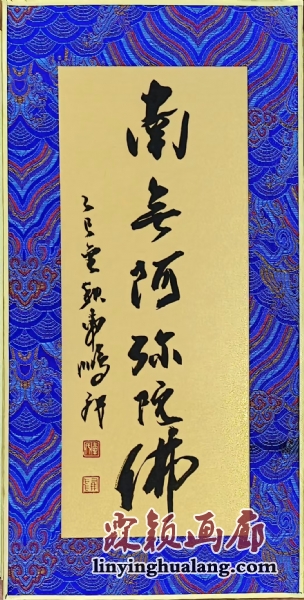 南無阿弥陀佛
乙巳
霖颖画廊
linyinghualang.com